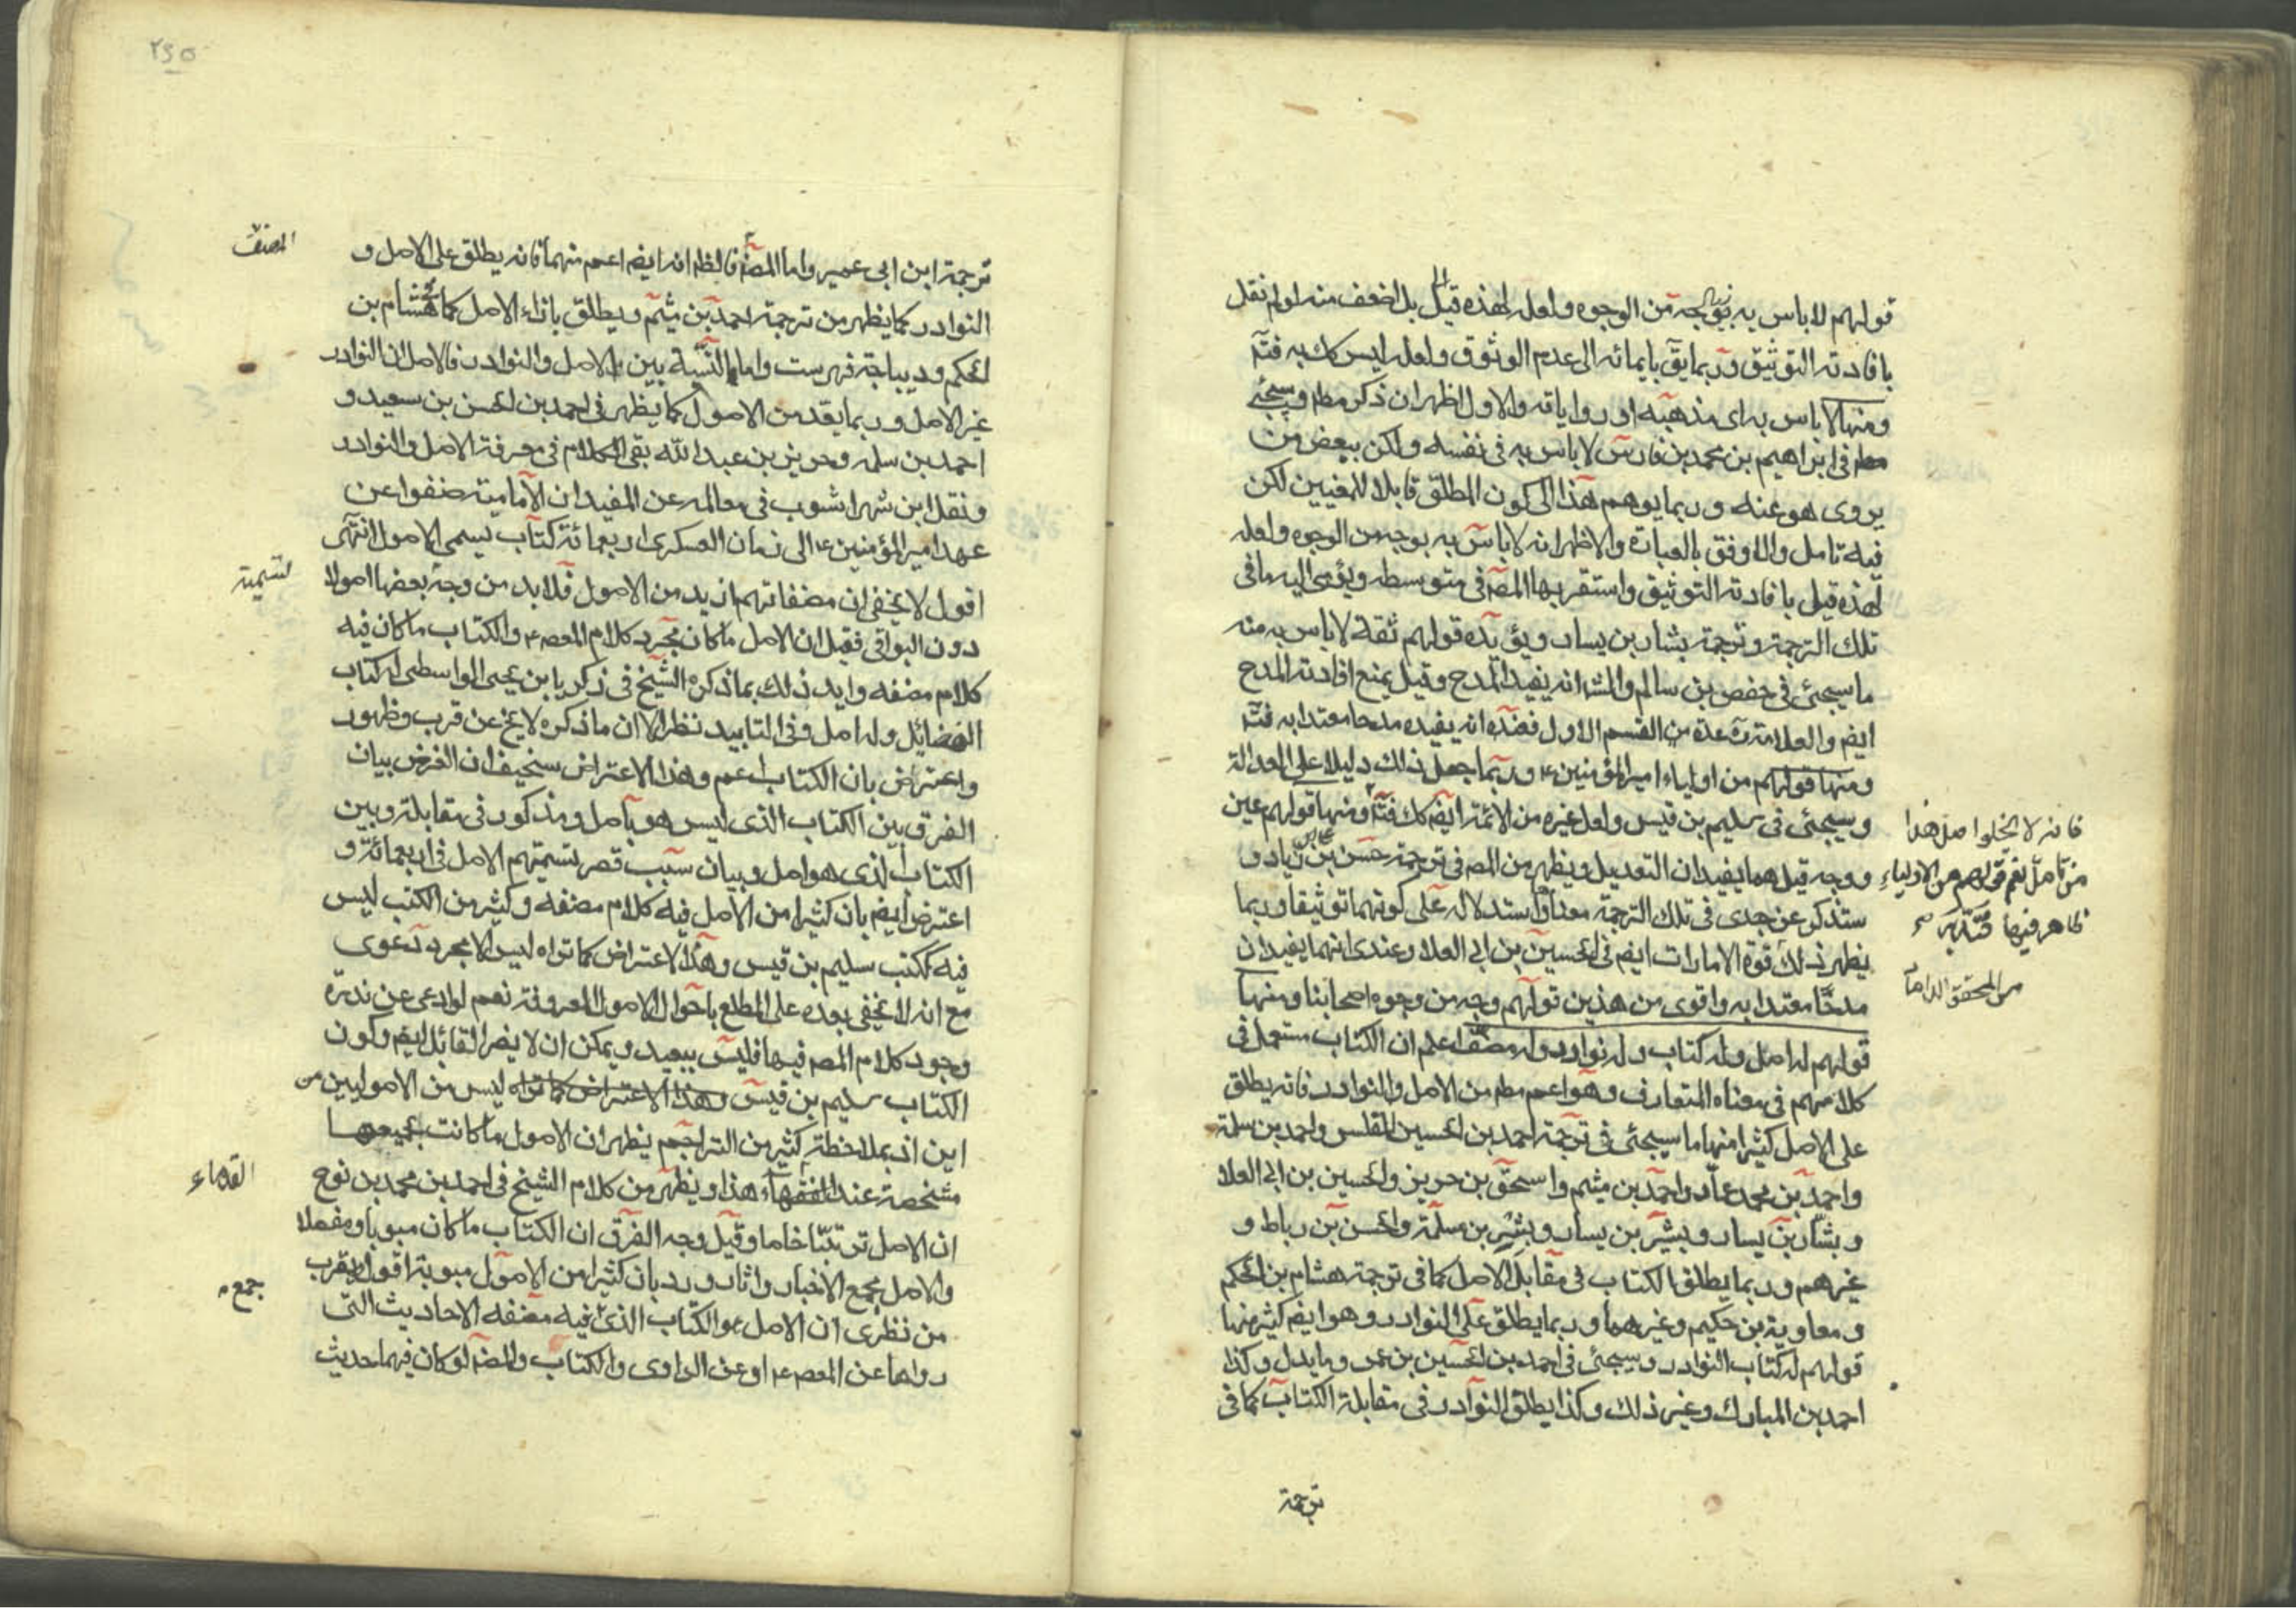 قولهم لا باس به بوجه من الوجوه ولعله لهذه قيل بل اضعف منه اولم نقل
بافادته التوثيق وربما يق بايمائه الى عدم الوثوق ولعله ليس كك به فتم
ومنها لا باس به اى مذهبه او رواياته والاول اظهر ان ذكر مطم وسيجئ
في ابراهيم بن محمد بن فارس لا باس به في نفسه ولكن ببعض من
يروى هو عنه وربما يوهم هذا الى كون المطلق قابلا للمعنيين لكن
فيه تامل والاوفق بالعبارة والاظهر انه لا باس به بوجه من الوجوه ولعله
لهذه قيل بافادته التوثيق واستقر بها المص في متوسطه ويؤمى اليه ما في
تلك الترجمة وترجمة بشار بن يسار ويؤيده قولهم ثقة لا باس به منه
ما سيجئ في حفص بن سالم والمش انه يفيد المدح وقيل يمنع افادته المدح
ايضم والعلامة ره عده من القسم الاول فعنده انه يفيده مدحا معتدا به فتم
ومنها قولهم من اولياء امير المؤمنين ع وربما جعل ذلك دليلا على العدالة
وسيجئ في سليم بن قيس ولعل غيره من الائمة ايضم كك فتم ومنها قولهم عين
ووجه قيل هما يفيدان التعديل ويظهر من المص في ترجمة حسن بن زياد و
سنذكر عن جدى في تلك الترجمة معناهما واستدلاله على كونهما توثيقا وربما
يظهر ذلك قوة الامارات ايضم في الحسين بن ابى العلا وعندى انهما يفيدان
مدحا معتدا به واقوى من هذين قولهم وجه من وجوه اصحابنا ومنها
قولهم له اصل وله كتاب وله نوادر وله مصنف اعلم ان الكتاب مستعمل في
كلامهم في معناه المتعارف وهو اعم مطم من الاصل والنوادر فانه يطلق
على الاصل كثيرا منها ما سيجئ في ترجمة احمد بن الحسين المفلس واحمد بن سلمة
واحمد بن محمد عمار واحمد بن ميثم واسحق بن جرير والحسين بن ابى العلا
وبشار بن يسار وبشير بن يسار وبشر بن سلمة والحسن بن رباط و
غيرهم وربما يطلق الكتاب في مقابل الاصل كما في ترجمة هشام بن الحكم
ومعاوية بن حكيم وغيرهما وربما يطلق على النوادر وهو ايضم كثير منها
قولهم له كتاب النوادر وسيجئ في احمد بن الحسين بن عمر وما يدل وكذا
احمد بن المبارك وغير ذلك وكذا يطلق النوادر في مقابلة الكتاب كما في
ترجمة
فانه لا يخلوا مثل هذا
من تامل نعم قولهم من الاولياء
ظاهر فيها فتدبر
من المحقق الداماد
٢٩٥
ترجمة ابن ابى عمير واما المصنف فالظم انه ايضم اعم منهما فانه يطلق على الاصل و
النوادر كما يظهر من ترجمة احمد بن ميثم ويطلق بازاء الاصل كما في هشام بن
الحكم وديباجة فهرست واما النسبة بين الاصل والنوادر فالاصل ان النوادر
غير الاصل وربما يعد من الاصول كما يظهر في احمد بن الحسن بن سعيد و
احمد بن سلمه وحريز بن عبد الله بقى الكلام في معرفة الاصل والنوادر
ونقل ابن شهراشوب في معالمه عن المفيد ان الامامية صنفوا عن
عهد امير المؤمنين ع الى زمان العسكرى اربعمائة كتاب يسمى الاصول انتهى
اقول لا يخفى ان مصنفاتهم ازيد من الاصول فلا بد من وجه بعضها اصولا
دون البواقى فقيل ان الاصل ما كان مجرد كلام المعصم ع والكتاب ما كان فيه
كلام مصنفه وايد ذلك بما ذكره الشيخ في زكريا بن يحيى الواسطى له كتاب
الفضائل وله اصل وفى التاييد نظر الا ان ما ذكره لا يخ عن قرب وظهور
واعترض بان الكتاب اعم وهذا الاعتراض سخيف ان الغرض بيان
الفرق بين الكتاب الذى ليس هو باصل ومذكور في مقابلة وبين
الكتاب الذى هو اصل وبيان سبب قصر تسميتهم الاصل في اربعمائة و
اعترض ايضم بان كثيرا من الاصل فيه كلام مصنفه وكثير من الكتب ليس
فيه ككتب سليم بن قيس وهذا الاعتراض كما تراه ليس الا مجرد دعوى
مع انه لا يخفى بعده على المطلع باحوال الاصول المعروفة نعم لو ادعى عن ندرة
وجود كلام المصم فيها فليس ببعيد ويمكن ان لا يضر القائل ايضم وكون
الكتاب سليم بن قيس وهذا الاعتراض كما تراه ليس من الاصوليين من
اين اذ بملاحظة كثير من التراجم يظهر ان الاصول ما كانت بجميعها
مشخصة عند الفقهاء هذا ويظهر من كلام الشيخ في احمد بن محمد بن نوح
ان الاصل ترتبا خاصا وقيل وجه الفرق ان الكتاب ما كان مبوبا ومفصلا
والاصل مجمع الاخبار واثار ورد بان كثيرا من الاصول مبوبة اقول ويقرب
من نظرى ان الاصل هو الكتاب الذى فيه مصنفه الاحاديث التى
رواها عن المعصم ع او عن الراوى والكتاب والمصم لو كان فيهما حديث
المصنف
لتسمية
القدماء
جمع